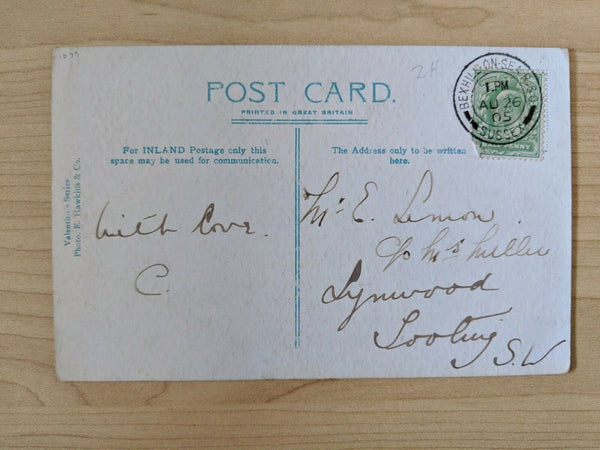 POST CARD.
PRINTED IN GREAT BRITAIN
For INLAND Postage only this
space may be used for communication.
The Address only to be written
here.
Valentine's Series
Photo. E. Hawkins & Co.
BEXHILL-ON-SEA
1 PM
AU 26
05
SUSSEX
PENNY
With love.
C.
Mr E. Lemon
c/o Mrs Miller
Lynwood
Tooting
S.W